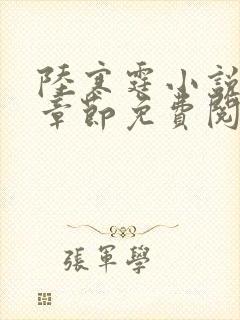 陸寒霆小說
章節免費閱
張軍學